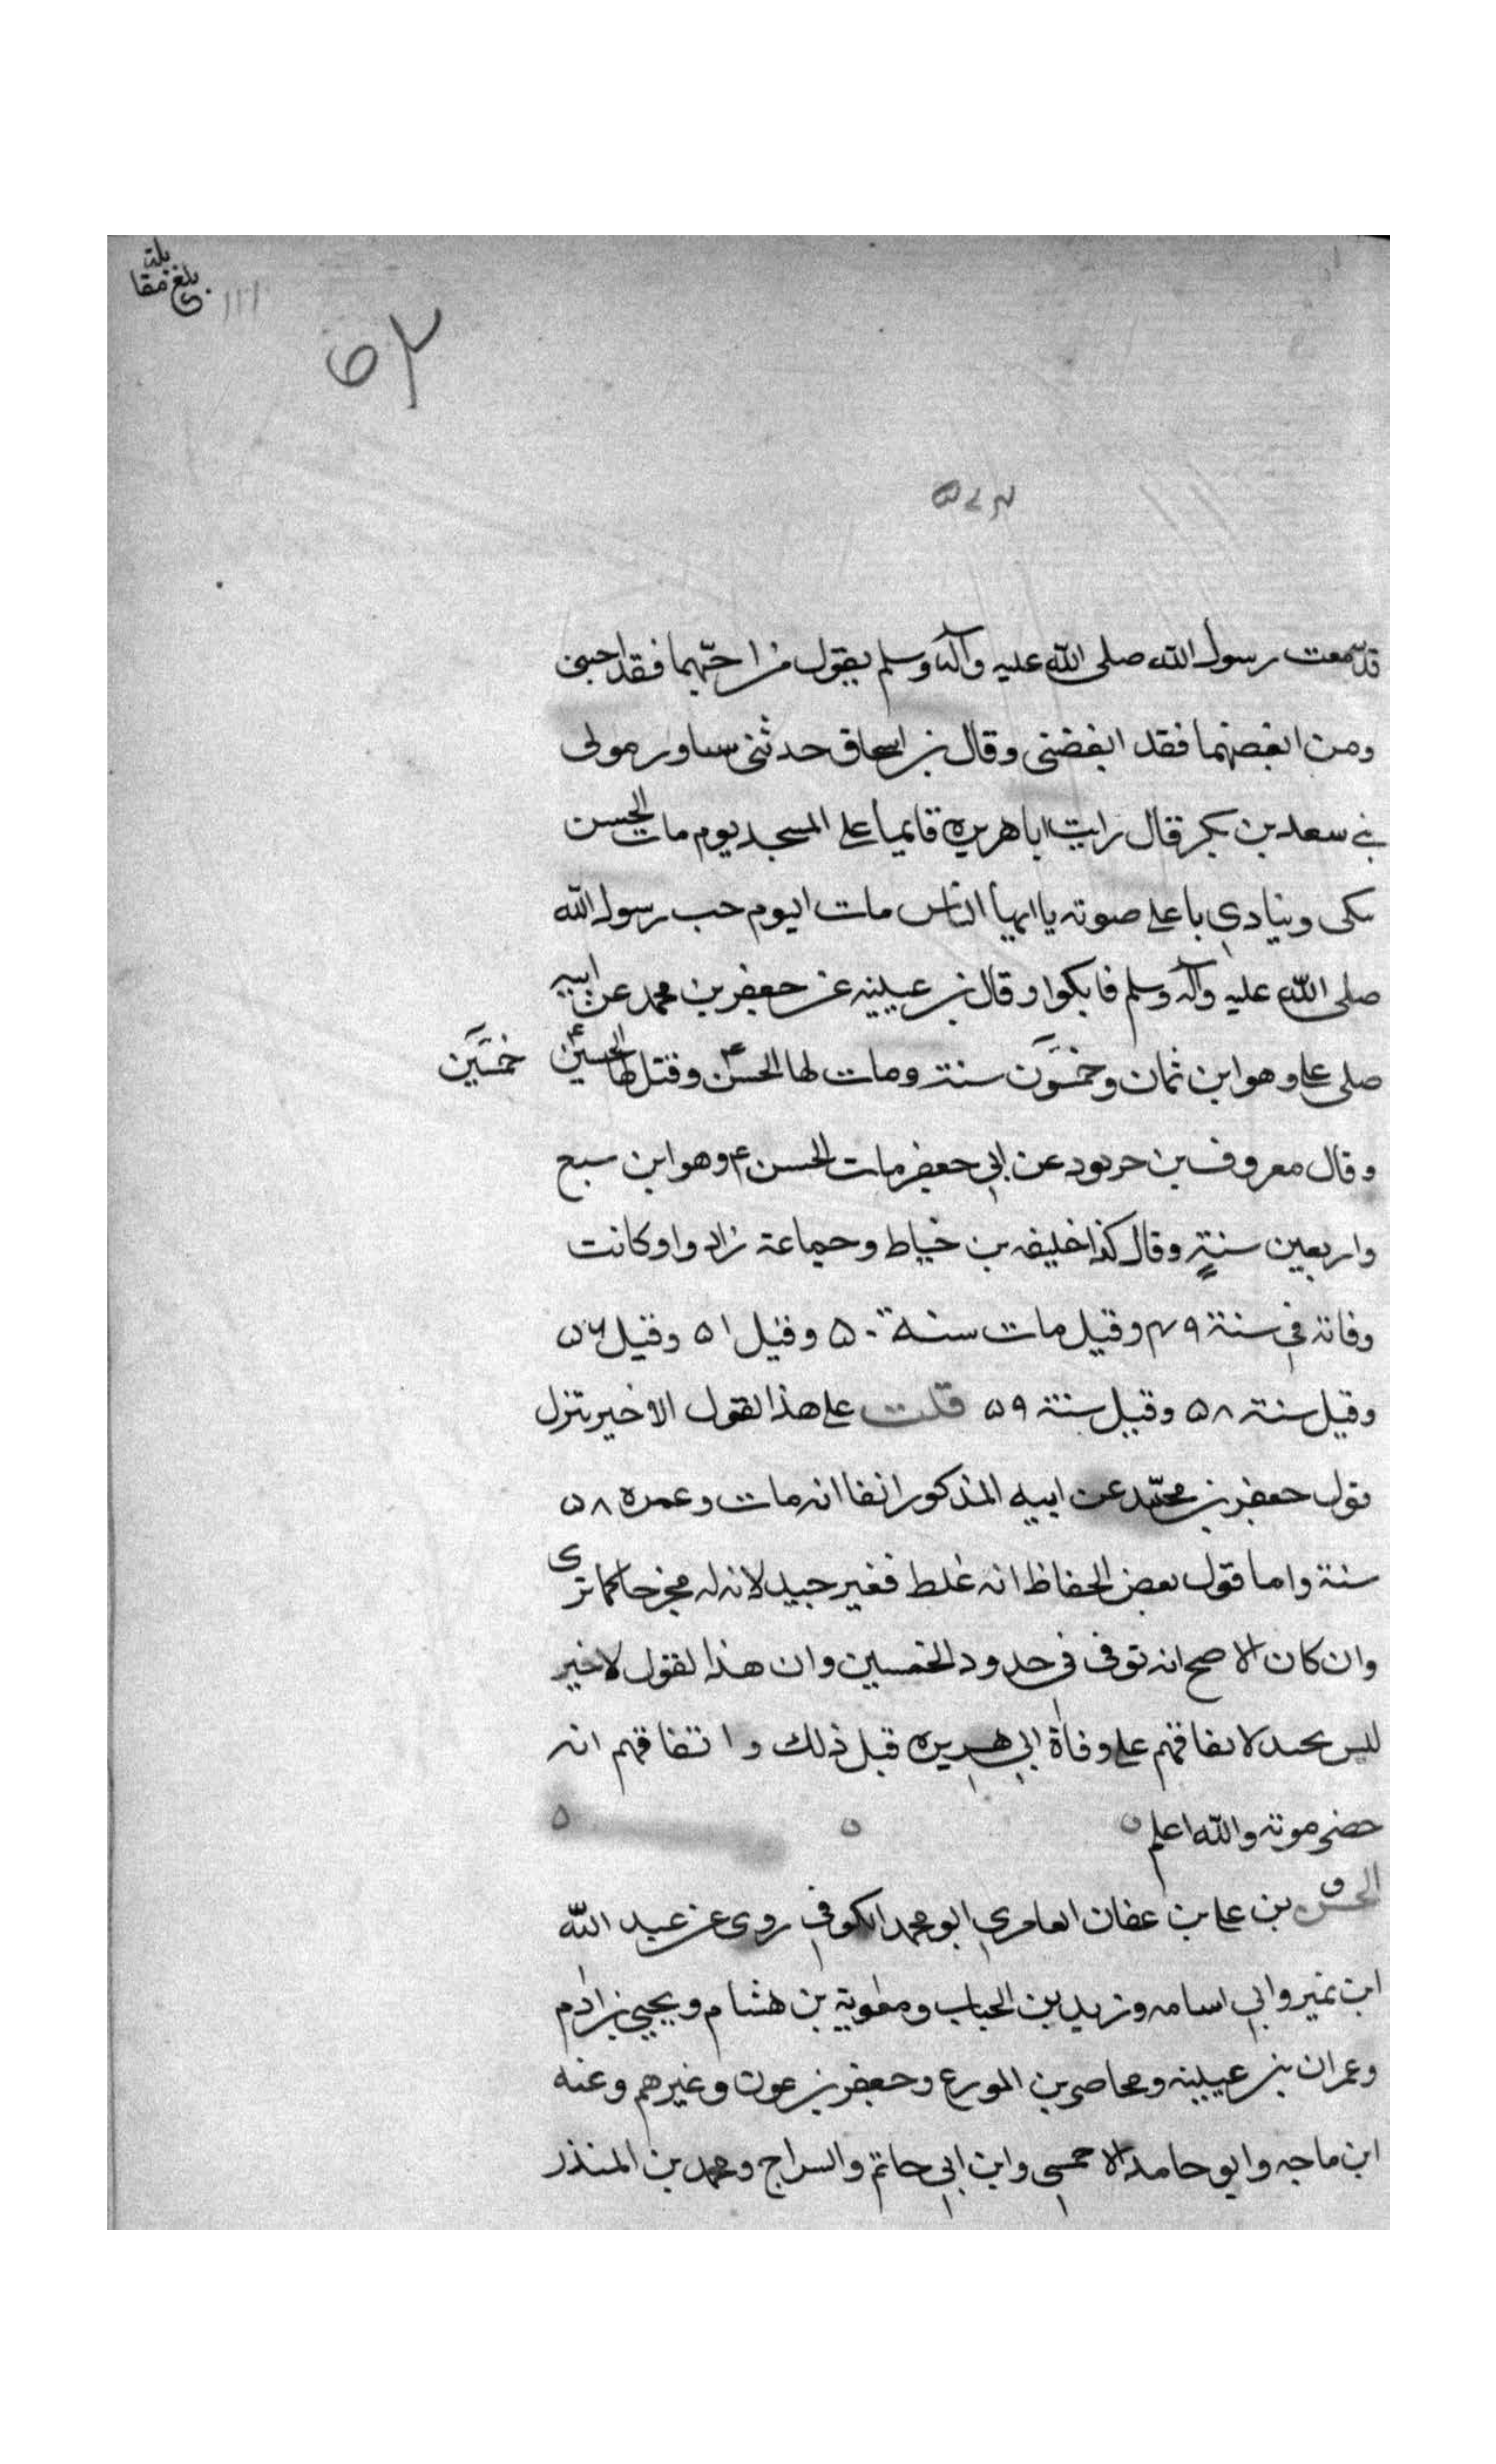 بلغ مقابلة
قد سمعت رسول الله صلى الله عليه وآله وسلم يقول من احبّهما فقد احبنى
ومن ابغضهما فقد ابغضنى وقال بن اسحاق حدثنى مساور مولى
بني سعد بن بكر قال رايت ابا هريره قايما على المسجد يوم مات الحسن
يبكى وينادي باعلى صوته يا ايها الناس مات اليوم حب رسول الله
صلى الله عليه وآله وسلم فابكوا وقال بن عيينه عن جعفر بن محمد عن ابيه
صلى على وهو ابن ثمان وخمسون سنة ومات لها الحسن وقتل لها الحسين
خمسين
وقال معروف بن خربوذ عن ابي جعفر مات الحسن ع وهو ابن سبع
واربعين سنة وقال كذا خليفه بن خياط وجماعة زادوا وكانت
وفاته في سنة ٤٩ وقيل مات سنة ٥٠ وقيل ٥١ وقيل ٥٦
وقيل سنة ٥٨ وقيل سنة ٥٩ قلت على هذا القول الاخير يتنزل
قول جعفر بن محمّد عن ابيه المذكور انفا انه مات وعمره ٥٨
سنة واما قول بعض الحفاظ انه غلط فغير جيد لانه له مخرجا كما ترى
وان كان الاصح انه توفى في حدود الخمسين وان هذا القول لاخير
ليس بجيد لاتفاقهم على وفاة ابي هريره قبل ذلك واتفاقهم انه
حضر موته والله اعلم
الحسن ق بن على بن عفان العامري ابو محمد الكوفي روى عن عبد الله
ابن نمير وابي اسامه وزيد بن الحباب ومعوية بن هشام ويحيى بن ادم
وعمران بن عيينه ومحاضر بن المورع وجعفر بن عون وغيرهم وعنه
ابن ماجه وابو حامد الاحمسي وابن ابي حاتم والسراج ومحمد بن المنذر